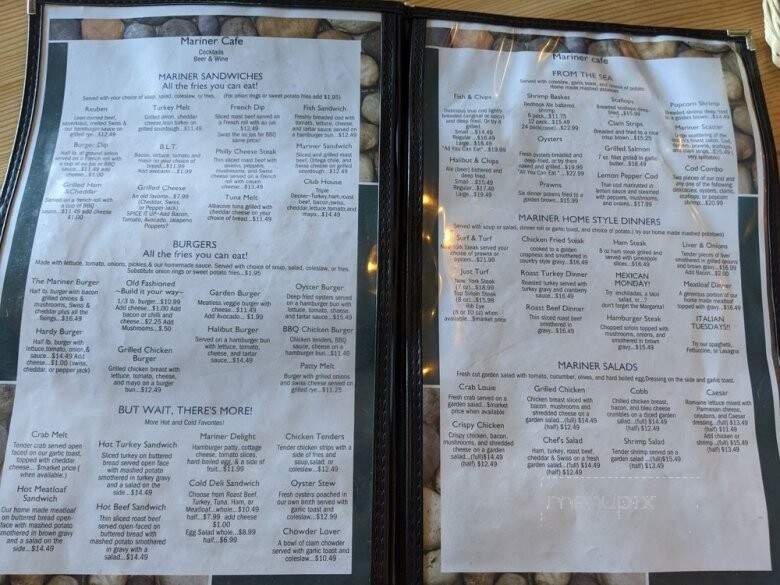 Mariner Cafe
Cocktails
Beer & Wine
MARINER SANDWICHES
All the fries you can eat!
Served with your choice of soup, salad, coleslaw, or fries. (For onion rings or sweet potato fries add $1.95)
Reuben
Lean corned beef,
sauerkraut, melted Swiss &
our hamburger sauce on
grilled rye...$12.49
Burger Dip
Half lb. of ground sirloin
served on a French roll with
a cup of au jus or BBQ
sauce...$11.49 add
cheese...$1.00
Grilled Ham
&Cheddar
Served on a french roll with
a cup of BBQ
sauce...$11.49 add cheese
$1.00
Turkey Melt
Grilled onion, cheddar
cheese, and turkey on
grilled sourdough...$11.49
B.L.T.
Bacon, lettuce, tomato, and
mayo on your choice of
bread...$11.49
Add avocado...$1.99
Grilled Cheese
An old favorite...$7.99
(Cheddar, Swiss,
or Pepper Jack)
SPICE IT UP~Add Bacon,
Tomato, Avocado, Jalapeno
Poppers?
French Dip
Sliced roast beef served on
a French roll with au jus
$12.49
Swap the au jus for BBQ
same price!
Philly Cheese Steak
Thin sliced roast beef with
onions, peppers,
mushrooms, and Swiss
cheese served on a french
roll with cream
cheese...$13.49
Tuna Melt
Albacore tuna grilled with
cheddar cheese on your
choice of bread...$11.49
Fish Sandwich
Freshly breaded cod with
tomato, lettuce, cheese,
and tartar sauce served on
a hamburger bun...$12.49
Mariner Sandwich
Sliced and grilled roast
beef, Ortega chile, and
Swiss cheese on grilled
sourdough...$12.49
Club House
Triple
Decker~Turkey,ham,roast
beef, bacon,swiss,
cheddar,lettuce,tomato,and
mayo...$14.49
BURGERS
All the fries you can eat!
Made with lettuce, tomato, onions, pickles,& our homemade sauce. Served with choice of soup, salad, coleslaw, or fries.
Substitute onion rings or sweet potato fries...$1.95
The Mariner Burger
Half lb. burger with bacon
grilled onions &
mushrooms, Swiss &
cheddar plus all the
fixings...$16.49
Hardy Burger
Half lb. burger with
lettuce, tomato, onion,&
sauce...$14.49 Add
cheese...$1.00 (swiss,
cheddar, or pepper jack)
Old Fashioned
~Build it your way~
1/3 lb. burger...$10.99
Add cheese...$1.00 Add
bacon or chili and
cheese...$2.25 Add
Mushrooms..$.50
Grilled Chicken
Burger
Grilled chicken breast with
lettuce, tomato, cheese,
and mayo on a burger
bun...$12.49
Garden Burger
Meatless veggie burger with
cheese...$11.49
Add Avocado...$1.99
Halibut Burger
Served on a hamburger bun
with lettuce, tomato,
cheese, and tartar
sauce...$14.49
Oyster Burger
Deep fried oysters served
on a hamburger bun with
lettuce, tomato, cheese,
and tartar sauce...$15.49
BBQ Chicken Burger
Chicken tenders, BBQ
sauce, cheese on a
hamburger bun...$11.40
Patty Melt
Burger with grilled onions
and swiss cheese served on
grilled rye...$11.25
BUT WAIT, THERE'S MORE!
More Hot and Cold Favorites!
Crab Melt
Tender crab served open
faced on our garlic toast,
topped with cheddar
cheese...$market price (
when available.)
Hot Meatloaf
Sandwich
Our home made meatloaf
on buttered bread open-
face with mashed potato
smothered in brown gravy
and a salad on the
side...$14.49
Hot Turkey Sandwich
Sliced turkey on buttered
bread served open face
with mashed potato
smothered in turkey gravy
and a salad on the
side...$14.49
Hot Beef Sandwich
Thin sliced roast beef
served open-faced on
buttered bread with
mashed potatoes smothered
in gravy with a
salad...$14.49
Mariner Delight
Hamburger patty, cottage
cheese, tomato slices,
hard-boiled egg, & a side of
fruit...$11.99
Cold Deli Sandwich
Choose from Roast Beef,
Turkey, Tuna, Ham, or
Meatloaf...whole...$10.49
half...$7.99 add cheese
$1.00
Egg Salad whole...$8.99
half...$6.99
Chicken Tenders
Tender chicken strips with a
side of fries and
soup,salad, or
coleslaw...$12.49
Oyster Stew
Fresh oysters poached in
our own broth served with
garlic toast and
coleslaw...$12.99
Chowder Lover
A bowl of clam chowder
served with garlic toast and
coleslaw...$10.49
Mariner cafe
FROM THE SEA
Served with coleslaw, garlic toast, and choice of potato
Home made mashed potatoes
Fish & Chips
Small ...$14.49
Regular ...$16.49
Large...$18.49
"All You Can Eat" ..$19.99
Halibut & Chips
Ale (beer) battered and
deep fried.
Small...$15.49
Regular..$17.49
Large...$19.49
Shrimp Basket
6 piece...$11.75
12 piece...$15.49
24 piece...$22.99
Oysters
Fresh oysters breaded and
deep-fried, or try them
naked and grilled...$19.99
"All You Can Eat" ..$22.99
Prawns
Six dinner prawns fried to a
golden brown...$15.99
Scallops
Breaded scallops deep-
fried...$15.99
Clam Strips
Breaded and fried to a nice
crisp brown...$15.25
Grilled Salmon
7 oz. filet grilled in garlic
butter...$18.49
Lemon Pepper Cod
True cod marinated in
lemon sauce and steamed
with peppers, mushrooms,
and onions...$17.99
Popcorn Shrimp
Mariner Scatter
Cod Combo
Two pieces of our cod and
any one of the following:
prawns, oysters, clams,
scallops, or popcorn
shrimp...$20.99
MARINER HOME STYLE DINNERS
Served with soup or salad, dinner roll or garlic toast, and choice of potato.( try our home made mashed potatoes)
Surf & Turf
New York Steak served your
choice of prawns or
oysters...$21.99
Just Turf
New York Steak
Top Sirloin Steak
(8 oz)...$15.99
Rib Eye
(8 or 10 oz) when
available..$market price
Chicken Fried Steak
cooked to a golden
crispness and smothered in
country style gravy...$16.49
Roast Turkey Dinner
Roasted turkey served with
turkey gravy and cranberry
sauce...$16.49
Roast Beef Dinner
Thin sliced roast beef
smothered in
gravy...$16.49
Ham Steak
8 oz ham steak grilled and
served with pineapple
slices...$16.49
MEXICAN
MONDAY!
Try enchiladas, a taco
salad, or...?
don't forget the Margarita!
Hamburger Steak
Chopped sirloin topped with
mushrooms, onions, and
smothered in brown
gravy...$15.49
Liver & Onions
Tender pieces of liver
smothered in grilled onions
and brown gravy...$16.99
Add Bacon...$2.00
Meatloaf Dinner
A generous portion of our
home made meatloaf
topped with brown
gravy...$16.99
ITALIAN
TUESDAYS!!
Try our spaghetti,
Fettuccine, or Lasagna
MARINER SALADS
Fresh cut garden salad with tomato, cucumber, olives, and hard boiled egg.Dressing on the side and garlic toast.
Crab Louie
Fresh crab served on a
garden salad...$market
price when available
Crispy Chicken
Crispy chicken, bacon,
mushrooms, and shredded
cheese on a garden
salad...(full)$14.49
(half) $12.49
Grilled Chicken
Chicken breast sliced with
bacon, mushrooms and
shredded cheese on a
garden salad...(full) $14.49
(half) $12.49
Chef's Salad
Ham, turkey, roast beef,
cheddar & Swiss on a fresh
garden salad...(full) $14.49
(half) $12.49
Cobb
Chilled chicken breast,
bacon, and bleu cheese
crumbles on a diced garden
salad...(full) $14.49
(half) $12.49
Shrimp Salad
Tender shrimp served on a
garden salad ...(full)$15.49
(half) $13.49
Caesar
Romaine lettuce mixed with
Parmesan cheese,
croutons, and Caesar
dressing...(full) $13.49
(half) $11.49
Add chicken or
shrimp...(full) $15.49
(half) $13.49
menupix